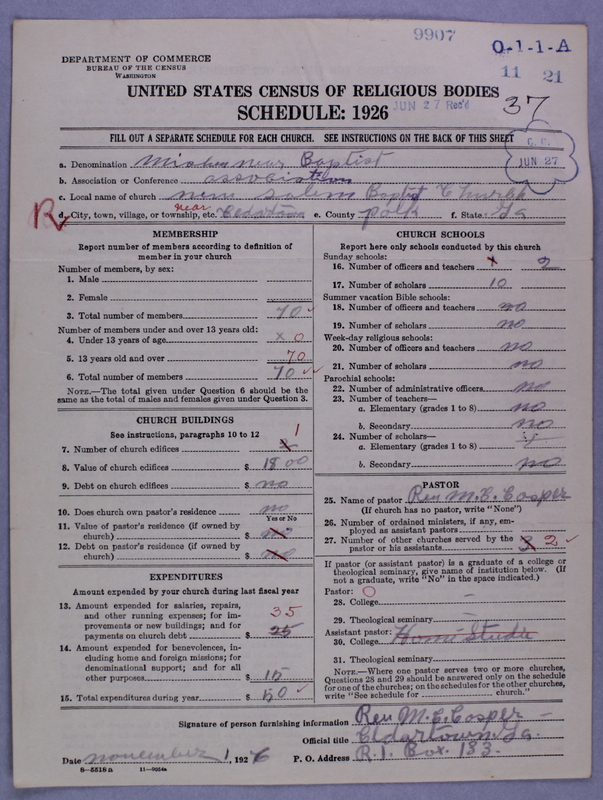 9907
O-1-1-A
11 21
DEPARTMENT OF COMMERCE
BUREAU OF THE CENSUS
WASHINGTON
UNITED STATES CENSUS OF RELIGIOUS BODIES
SCHEDULE: 1926
JUN 27 Rec'd
37
FILL OUT A SEPARATE SCHEDULE FOR EACH CHURCH. SEE INSTRUCTIONS ON THE BACK OF THIS SHEET
JUN 27
a. Denomination Baptist
b. Association or Conference association
c. Local name of church new Salem Baptist Church
R
d. City, town, village, or township, etc. near e. County polk f. State Ga
MEMBERSHIP
Report number of members according to definition of member in your church
Number of members, by sex:
1. Male
2. Female
3. Total number of members 70
Number of members under and over 13 years old:
4. Under 13 years of age x 0
5. 13 years old and over 70
6. Total number of members 70
NOTE.—The total given under Question 6 should be the same as the total of males and females given under Question 3.
CHURCH BUILDINGS
See instructions, paragraphs 10 to 12
7. Number of church edifices 1
8. Value of church edifices $ 1800
9. Debt on church edifices $ no
10. Does church own pastor's residence? no
Yes or No
11. Value of pastor's residence (if owned by church) $ no
12. Debt on pastor's residence (if owned by church) $ no
EXPENDITURES
Amount expended by your church during last fiscal year
13. Amount expended for salaries, repairs, and other running expenses; for improvements or new buildings; and for payments on church debt $ 35 25
14. Amount expended for benevolences, including home and foreign missions; for denominational support; and for all other purposes $ 15
15. Total expenditures during year $ 50
CHURCH SCHOOLS
Report here only schools conducted by this church
Sunday schools:
16. Number of officers and teachers 2
17. Number of scholars 10
Summer vacation Bible schools:
18. Number of officers and teachers no
19. Number of scholars no
Week-day religious schools:
20. Number of officers and teachers no
21. Number of scholars no
Parochial schools:
22. Number of administrative officers no
23. Number of teachers—
a. Elementary (grades 1 to 8) no
b. Secondary no
24. Number of scholars—
a. Elementary (grades 1 to 8)
b. Secondary no
PASTOR
25. Name of pastor Rev M. C. Cosper
(If church has no pastor, write "None")
26. Number of ordained ministers, if any, employed as assistant pastors
27. Number of other churches served by the pastor or his assistants 3 2
If pastor (or assistant pastor) is a graduate of a college or theological seminary, give name of institution below. (If not a graduate, write "No" in the space indicated.)
Pastor: O
28. College –
29. Theological seminary –
Assistant pastor:
30. College Home Studie
31. Theological seminary
NOTE.—Where one pastor serves two or more churches, Questions 28 and 29 should be answered only on the schedule for one of the churches; on the schedules for the other churches, write "See schedule for church."
Signature of person furnishing information Rev M. C. Cosper
Official title Ga.
Date november 1, 1926 P. O. Address R.1. Box. 183.
8—5518a 11—9054a